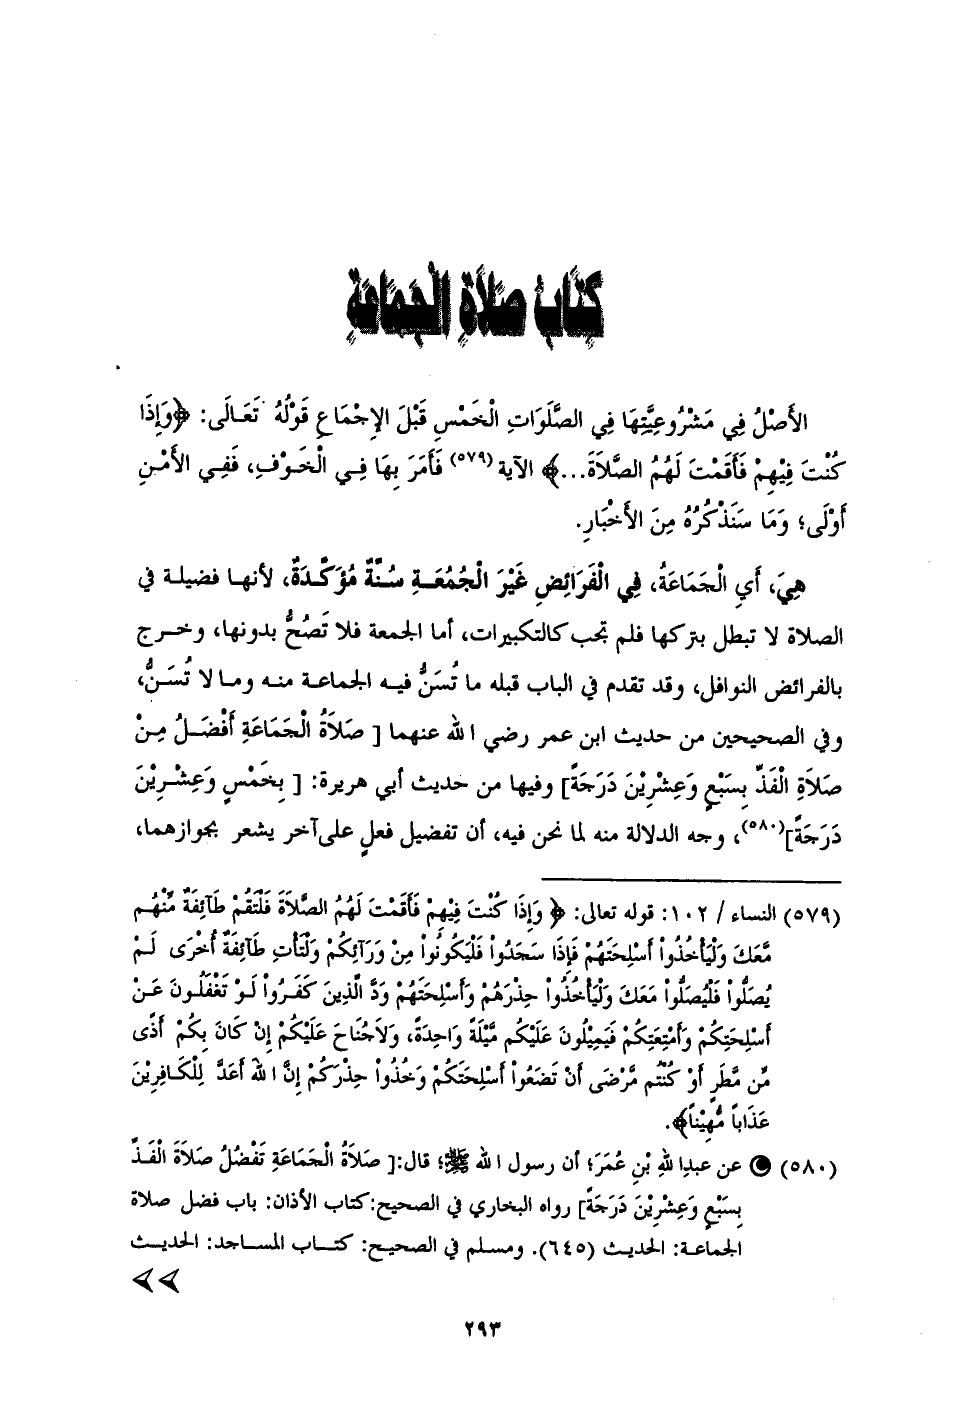 كِتَابُ صَلاَةِ الْجَمَاعَةِ
الأَصْلُ فِي مَشْرُوعِيَّتِهَا فِي الصَّلَوَاتِ الْخَمْسِ قَبْلَ الإِجْمَاعِ قَوْلُهُ تَعَالَى: ﴿وَإِذَا
كُنْتَ فِيْهِمْ فَأَقَمْتَ لَهُمُ الصَّلاَةَ...﴾ الآية (٥٧٩) فَأَمَرَ بِهَا فِي الْخَوْفِ، فَفِي الأَمْنِ
أَوْلَى؛ وَمَا سَنَذْكُرُهُ مِنَ الأَخْبَارِ.
هِيَ، أَيِ الْجَمَاعَةُ، فِي الْفَرَائِضِ غَيْرَ الْجُمُعَةِ سُنَّةٌ مُؤَكَّدَةٌ، لأنها فضيلة في
الصلاة لا تبطل بتركها فلم تجب كالتكبيرات، أما الجمعة فلا تَصُحُّ بدونها، وخرج
بالفرائض النوافل، وقد تقدم في الباب قبله ما تُسَنُّ فيه الجماعة منه وما لا تُسَنُّ،
وفي الصحيحين من حديث ابن عمر رضي الله عنهما [ صَلاَةُ الْجَمَاعَةِ أَفْضَلُ مِنْ
صَلاَةِ الْفَذِّ بِسَبْعٍ وَعِشْرِيْنَ دَرَجَةً] وفيها من حديث أبي هريرة: [ بِخَمْسٍ وَعِشْرِيْنَ
دَرَجَةً](٥٨٠)، وجه الدلالة منه لما نحن فيه، أن تفضيل فعلٍ على آخر يشعر بجوازهما،
(٥٧٩) النساء / ١٠٢: قوله تعالى: ﴿ وَإِذَا كُنْتَ فِيْهِمْ فَأَقَمْتَ لَهُمُ الصَّلاَةَ فَلْتَقُمْ طَآئِفَةٌ مِّنْهُم
مَّعَكَ وَلْيَأْخُذُواْ أَسْلِحَتَهُمْ فَإِذَا سَجَدُواْ فَلْيَكُونُواْ مِنْ وَرَآئِكُمْ وَلْتَأْتِ طَآئِفَةٌ أُخْرَى لَمْ
يُصَلُّواْ فَلْيُصَلُّواْ مَعَكَ وَلْيَأْخُذُواْ حِذْرَهُمْ وَأَسْلِحَتَهُمْ وَدَّ الَّذِينَ كَفَرُواْ لَوْ تَغْفَلُونَ عَنْ
أَسْلِحَتِكُمْ وَأَمْتِعَتِكُمْ فَيَمِيْلُونَ عَلَيْكُم مَّيْلَةً وَاحِدَةً، وَلاَجُنَاحَ عَلَيْكُمْ إِنْ كَانَ بِكُمْ أَذًى
مِّن مَّطَرٍ أَوْ كُنْتُم مَّرْضَى أَنْ تَضَعُواْ أَسْلِحَتَكُمْ وَخُذُواْ حِذْرَكُمْ إِنَّ اللهَ أَعَدَّ لِلْكَافِرِيْنَ
عَذَاباً مُّهِيْناً﴾.
(٥٨٠) عن عبدِاللهِ بْنِ عُمَرَ؛ أن رسول الله ﷺ؛ قال:[ صَلاَةُ الْجَمَاعَةِ تَفْضُلُ صَلاَةَ الْفَذِّ
بِسَبْعٍ وَعِشْرِيْنَ دَرَجَةً] رواه البخاري في الصحيح:كتاب الأذان: باب فضل صلاة
الجماعة: الحديث (٦٤٥). ومسلم في الصحيح: كتاب المساجد: الحديث
٢٩٣